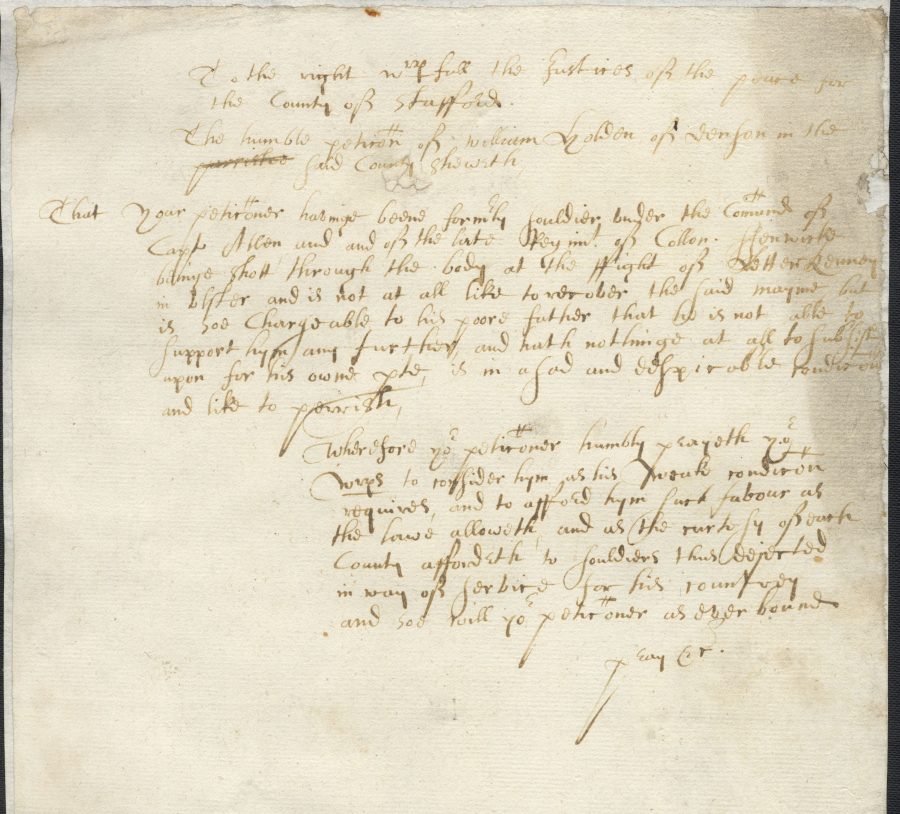 To the right wrpfull the Justices of the peace for
the County of Stafford.
The humble peticon of William Holden of Denson in the
parrishe said County sheweth
That your peticoner havinge beene formrly souldier under the Comand of
Capt Allen and and of the late Regimt. of Collon. Fenwicke
beinge shott through the body at the ffight of Letter Kenney
in Ulster and is not at all like to recover the said mayme but
is soe Chargeable to his poore father that he is not able to
support hym any further, and hath nothinge at all to subsist
upon for his owne pte, is in a sad and despicable condicon
and like to perrish,
Wherefore yor peticoner humbly prayeth yor
wrps to consider hym as his weake condicon
requires, and to afford hym such favour as
the lawe alloweth, and as the curtesy of each
County affordeth to souldiers thus dejected
in way of service for his countrey
and soe will yor peticoner as ever bound
pray &c.